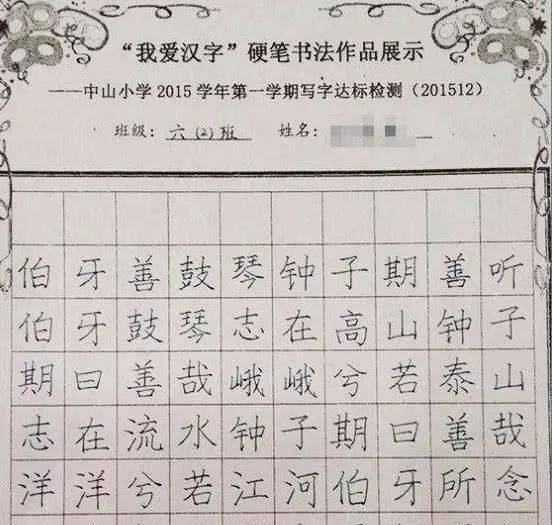 “我爱汉字”硬笔书法作品展示
——中山小学 2015 学年第一学期写字达标检测（201512）
班级：六（2）班 姓名：
伯牙善鼓琴钟子期善听
伯牙鼓琴志在高山钟子
期曰善哉峨峨兮若泰山
志在流水钟子期曰善哉
洋洋兮若江河伯牙所念